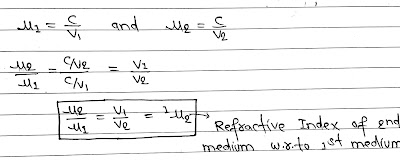 μ1 = C/V1 and μ2 = C/V2
μ2/μ1 = C/V2 / C/V1 = V1/V2
μ2/μ1 = V1/V2 = ¹μ2 → Refractive Index of 2nd
medium w.r.to 1st medium